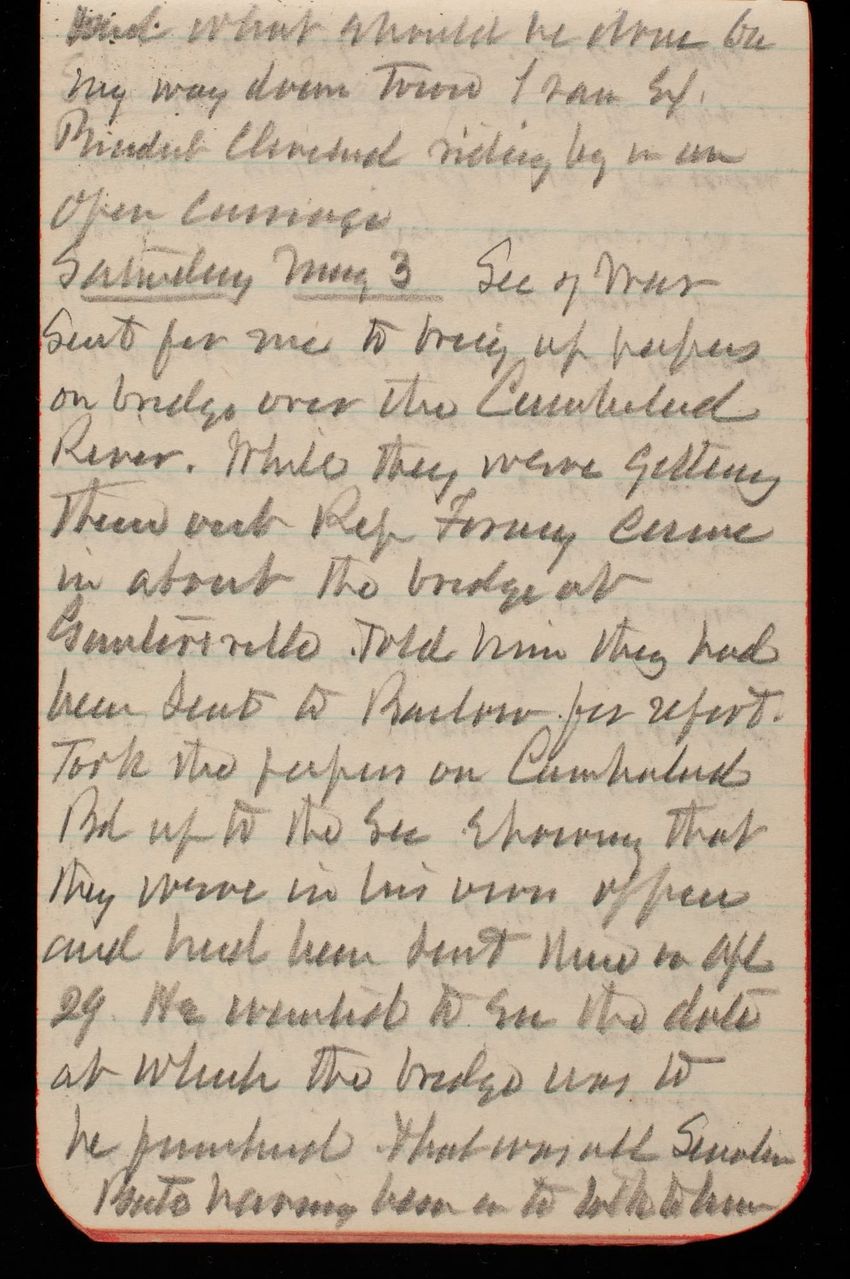 and what should be done On
my way down Town I saw Ex.
President Cleveland riding by in an
open carriage
Saturday May 3 Sec of War
Sent for me to bring up papers
on bridge over the Cumberland
River. While they were getting
them out Rep Forney came
in about the bridge at
Guntersville. Told him they had
been sent to Barlow for report.
Took the papers on Cumberland
Bd up to the Sec showing that
they were in his own office
and had been sent there on Apl
29. He wanted to see the date
at which the bridge was to
be finished that was all Senator
Bate having been in to talk to him